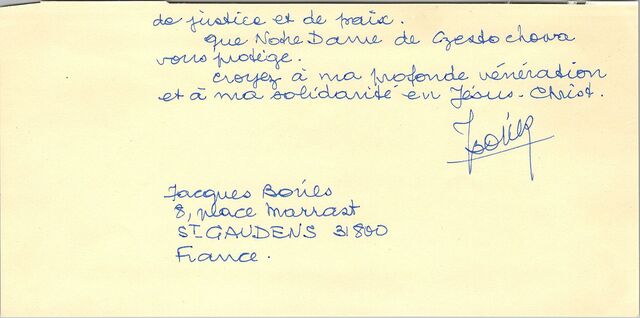 de justice et de paix.
que Notre Dame de Czestochowa
vous protège.
croyez à ma profonde vénération
et à ma solidarité en Jésus-Christ.
Jacques
8, place Marrast
ST GAUDENS 31800
France.